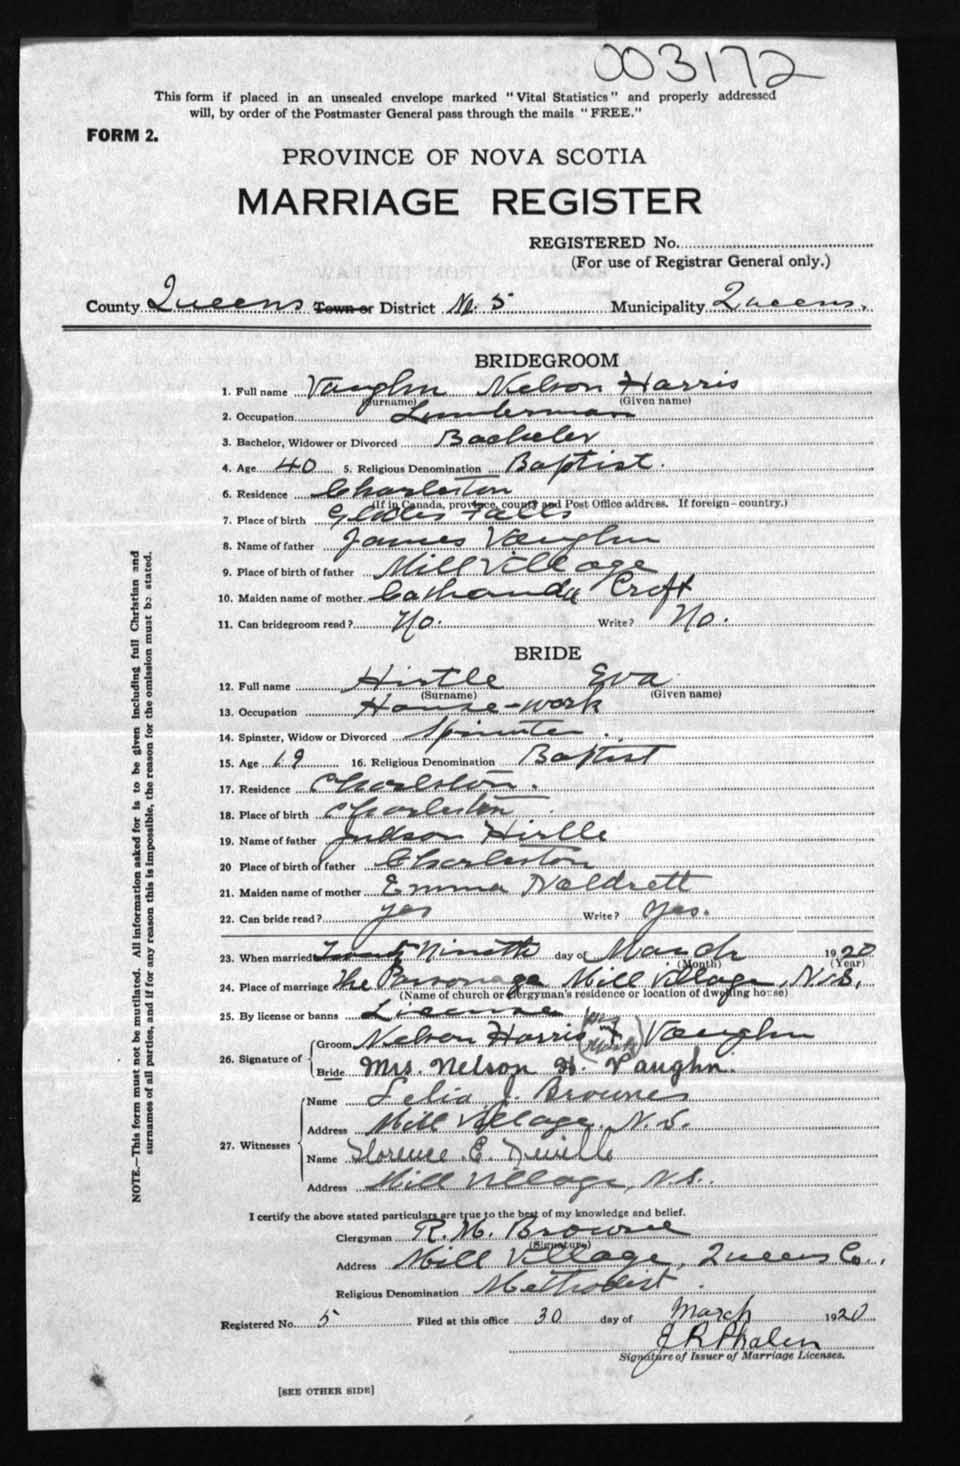 003172
This form if placed in an unsealed envelope marked "Vital Statistics" and properly addressed
will, by order of the Postmaster General pass through the mails "FREE."
FORM 2.
PROVINCE OF NOVA SCOTIA
MARRIAGE REGISTER
REGISTERED No.
(For use of Registrar General only.)
County Queens Town or District No. 5 Municipality Queens.
BRIDEGROOM
1. Full name Vaughn Nelson Harris
(Surname) (Given name)
2. Occupation Lumberman
3. Bachelor, Widower or Divorced Bachelor
4. Age 40 5. Religious Denomination Baptist.
6. Residence Charleston
(If in Canada, province, county and Post Office address. If foreign-country.)
7. Place of birth Falls
8. Name of father James Vaughn
9. Place of birth of father Mill Village
10. Maiden name of mother Croft
11. Can bridegroom read? No. Write? No.
BRIDE
12. Full name Hirtle Eva
(Surname) (Given name)
13. Occupation House-work
14. Spinster, Widow or Divorced Spinster.
15. Age 19 16. Religious Denomination Baptist
17. Residence Charleston.
18. Place of birth Charleston.
19. Name of father Judson Hirtle
20 Place of birth of father Charleston
21. Maiden name of mother Emma Naldrett
22. Can bride read? yes Write? Yes.
23. When married Twenty Nineth day of March 1920
(Month) (Year)
24. Place of marriage The Parsonage Mill Village, N.S.
(Name of church or clergyman's residence or location of dwelling house)
25. By license or banns License
26. Signature of
Groom Nelson Harris X Vaughn
his mark
Bride Mrs. Nelson H. Vaughn.
27. Witnesses
Name Lelia J. Browne
Address Mill Village, N.S.
Name Florence E.
Address Mill Village, N.S.
I certify the above stated particulars are true to the best of my knowledge and belief.
Clergyman R. M. Browne
(Signature)
Address Mill Village, Queens Co.,
Religious Denomination Methodist.
Registered No. 5 Filed at this office 30 day of March 1920
Signature of Issuer of Marriage Licenses.
[SEE OTHER SIDE]
NOTE.—This form must not be mutilated. All information asked for is to be given including full Christian and
surnames of all parties, and if for any reason this is impossible, the reason for the omission must be stated.